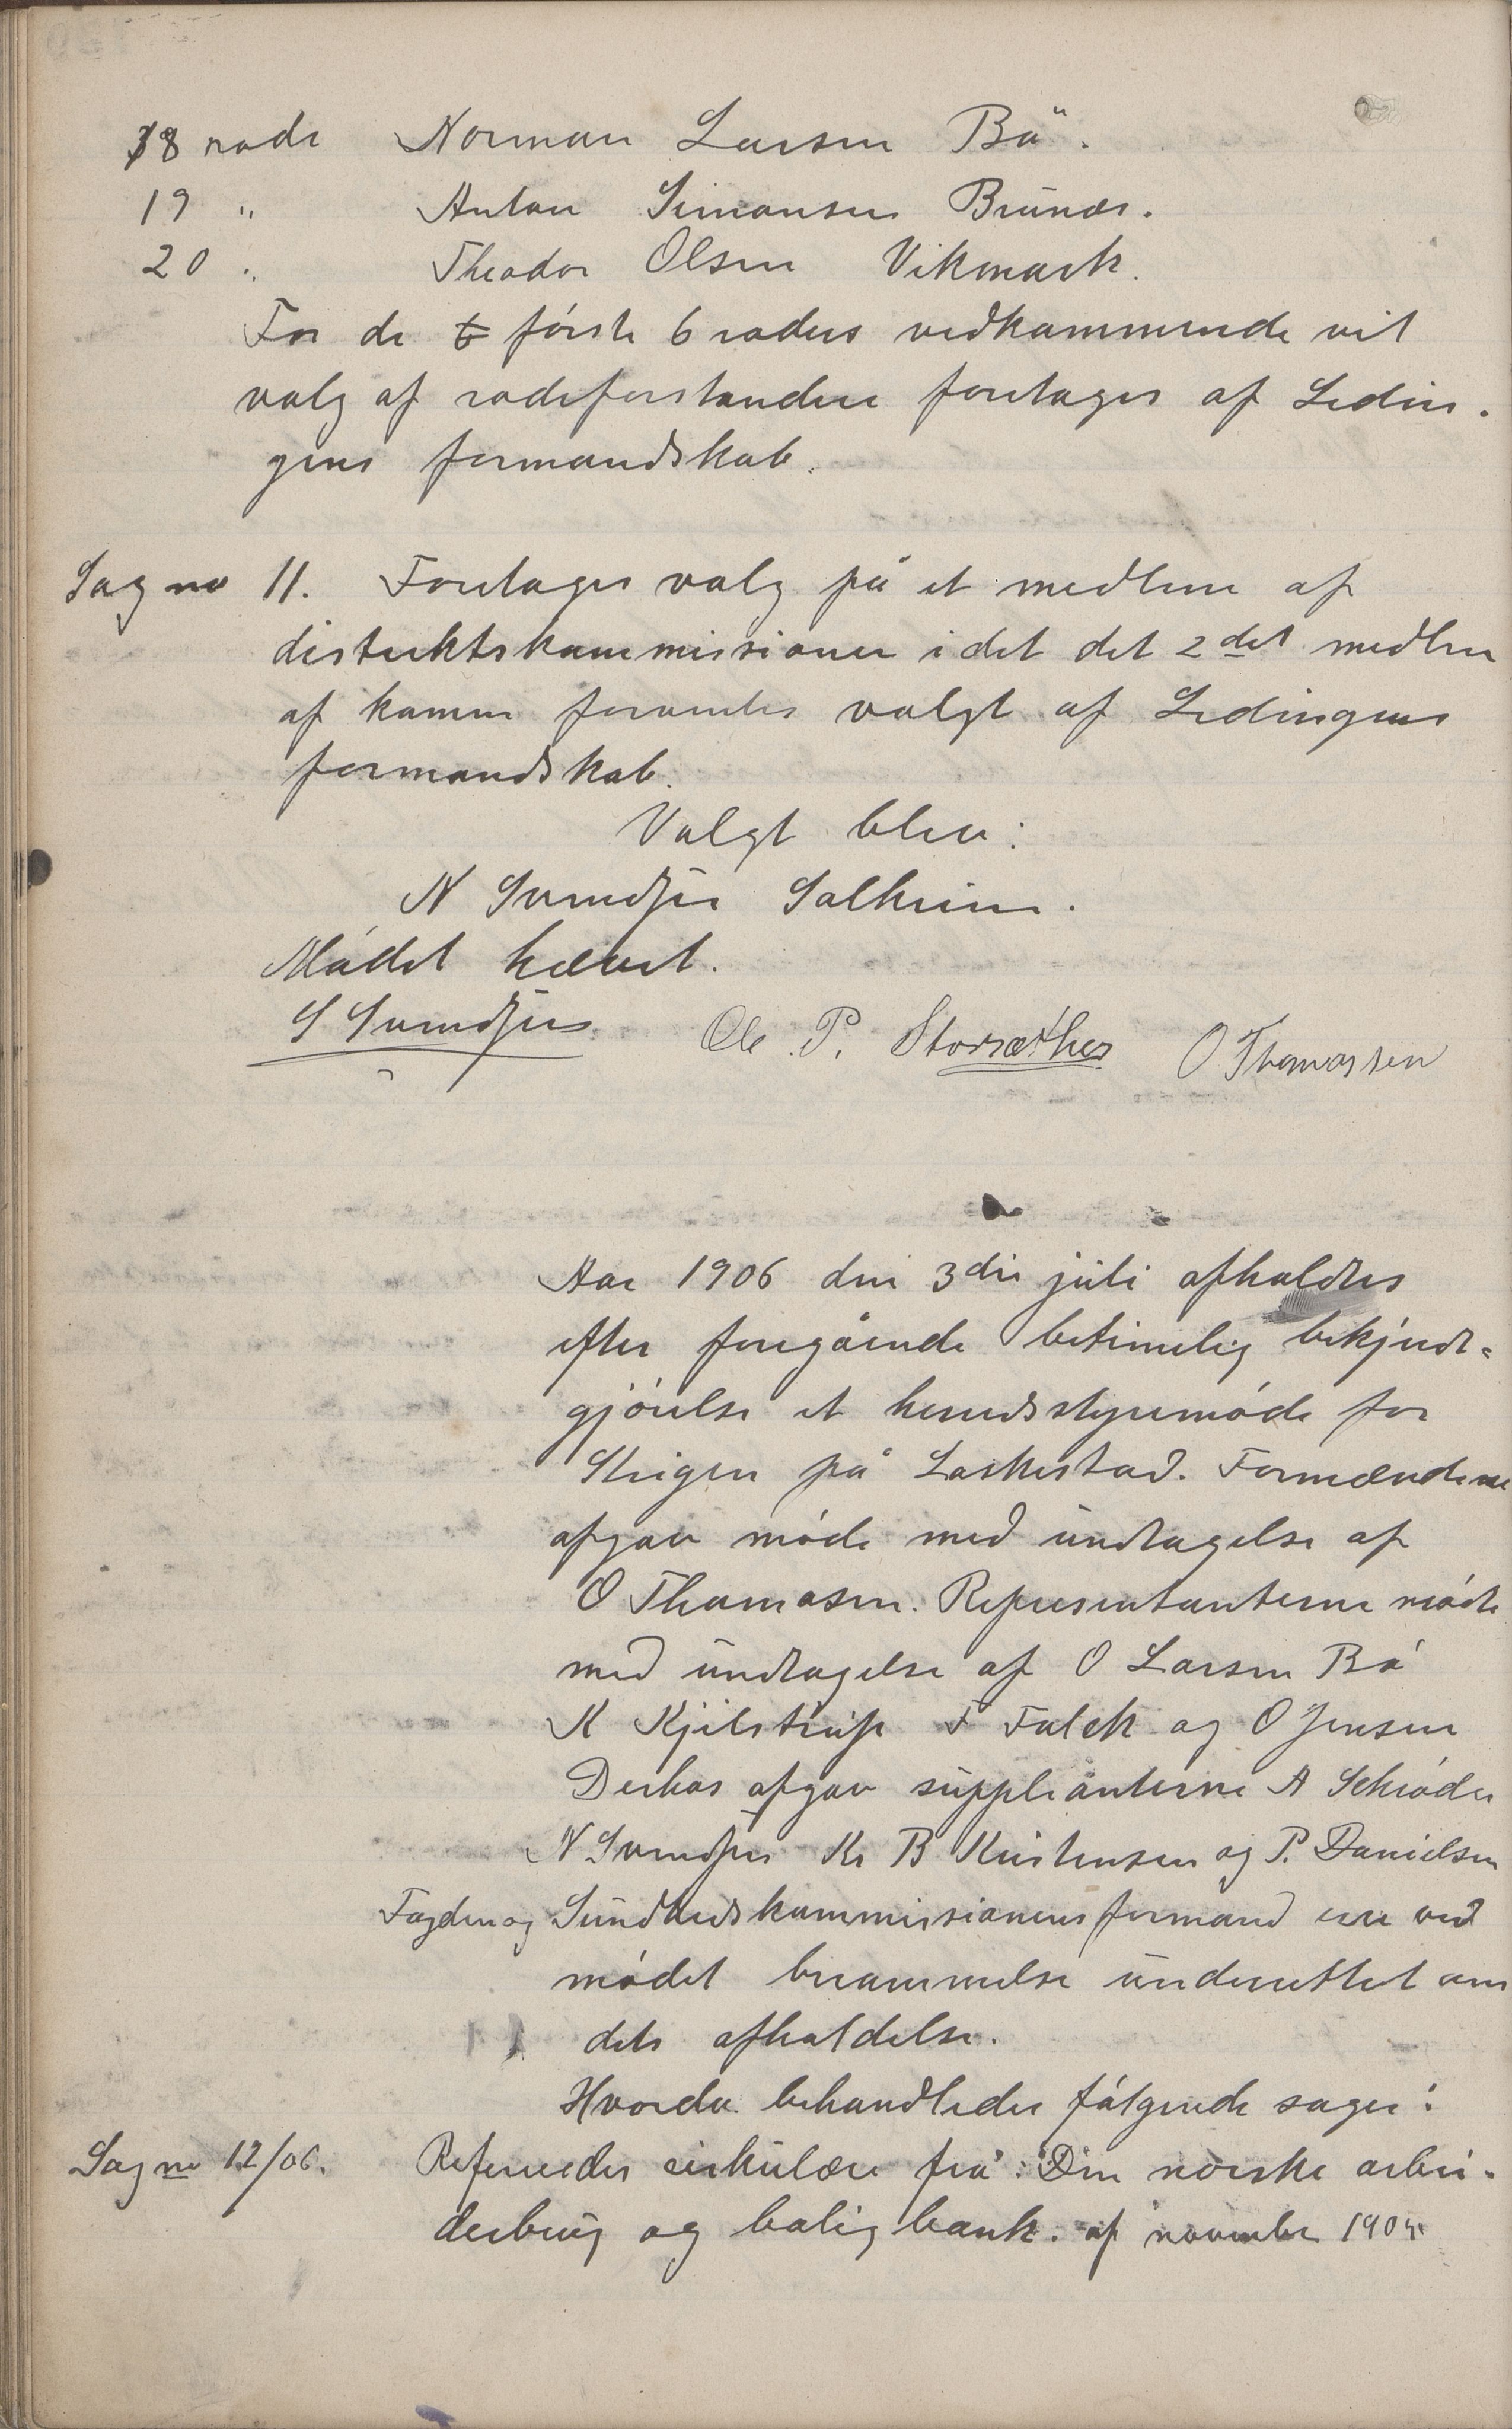 18 rode Norman Larsen Bö.
19 " Anton Simonsen Brunæs.
20 " Theodor Olsen Vikmark.
For de 6 förste 6 roders vedkommende vil
valg af rodeforstandere foretages af Lødin-
gens formandskab.
Sag no 11. Foretages valg på et medlem af
distriktskommissionen i det det 2det medlem
af komm forventes valgt af Lødingens
formandskab.
Valgt blev:
N Svendsen Salheim.
Mødet hævet.
S Svendsen Ole P. Storsæther O Thomassen
Aar 1906 den 3die juli afholdtes
efter foregående betimelig bekjendt-
gjørelse et heredsstyremøde for
Steigen på Laskestad. Formændene
afgav møde med undtagelse af
O Thomasen. Representanterne mødte
med undtagelse af O Larsen Bö
K Kjilstrup F Falch og O Jensen
Derhos afgav supplianterne A Schrøder
N Svendsen Kr B Kristensen og P. Danielsen
Fogden og Sundhedskommissionens formand ere ved
mødet berammelse underrettet om
dets afholdelse.
Hvorda behandledes følgende sager:
Sag no 12/06. Refereredes cirkulære frå: Den norske arbei-
derbrug og bolig bank. af november 1904